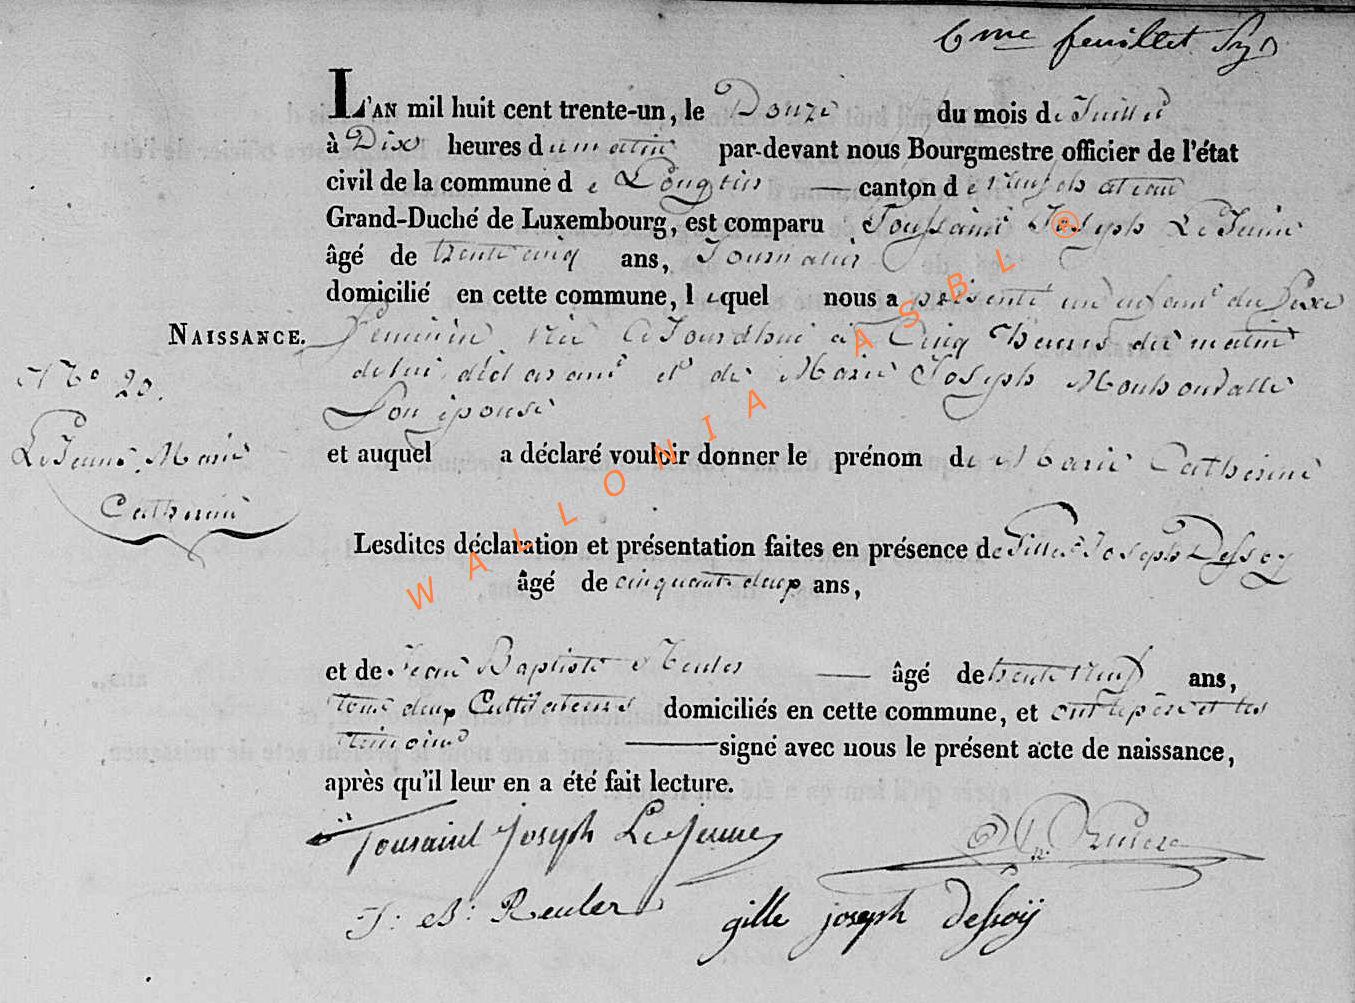 6me feuillet
L'AN mil huit cent trente-un, le Douze du mois de Juillet
à Dix heures du matin par-devant nous Bourgmestre officier de l'état
civil de la commune d e Longlier — canton d e neufchateau
Grand-Duché de Luxembourg, est comparu Toussaint Joseph LeJeune
âgé de trente cinq ans, Journalier
domicilié en cette commune, lequel nous a présenté un enfant du sexe
NAISSANCE. féminin née Ce Jourdhui à Cinq heures du matin
N° 20. de lui déclarant et de Marie Joseph
Son épouse
LeJeune Marie et auquel a déclaré vouloir donner le prénom de Marie Catherine
Catherine
Lesdites déclaration et présentation faites en présence de Gille Joseph Dessoy
âgé de cinquante deux ans,
et de Jean Baptiste Reuler — âgé de trente neuf ans,
tous deux Cultivateurs domiciliés en cette commune, et ont le père et les
témoins — signé avec nous le présent acte de naissance,
après qu'il leur en a été fait lecture.
Tousaint Joseph LeJeune
J: B: Reuler gille joseph dessoÿ
WALLONIA ASBL ®